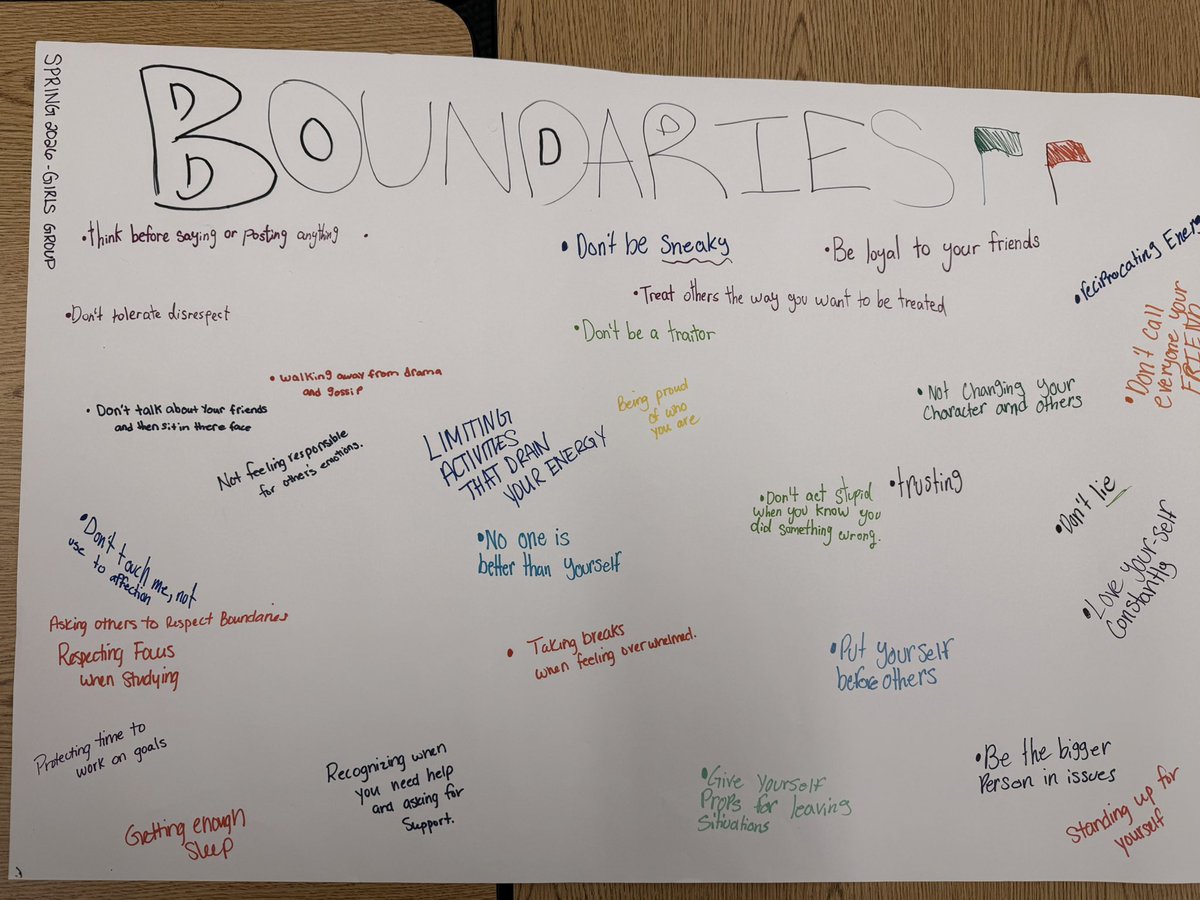 SPRING 2026 - GIRLS GROUP
BOUNDARIES
•think before saying or posting anything •
•Don't be Sneaky
•Be loyal to your friends
•reciprocating Energ
•Treat others the way you want to be treated
•Don't tolerate disrespect
•Don't be a traitor
•Don't Call
everyone your
FRIEND
•walking away from drama
and gossip
• Don't talk about your friends
and then sit in there face
Being proud
of who
you are
•Not changing your
Character arnd others
LIMITING
ACTIVITIES
THAT DRAIN
YOUR ENERGY
Not feeling responsible
for other's emotions.
•Don't act stupid
when you know you
did something wrong.
•trusting
•Don't lie
•Don't touch me, not
use to affection
•No one is
better than yourself
•Love your-self
Constantly
Asking others to Respect Boundaries
Respecting Focus
when Studying
• Taking breaks
when feeling overwhelmed.
•Put yourself
before others
Protecting time to
work on goals
Recognizing when
you need help
and asking for
Support.
•Give yourself
Props for leaving
Sitivations
•Be the bigger
Person in issues
Standing up for
yourself
Getting enough
Sleep
:)